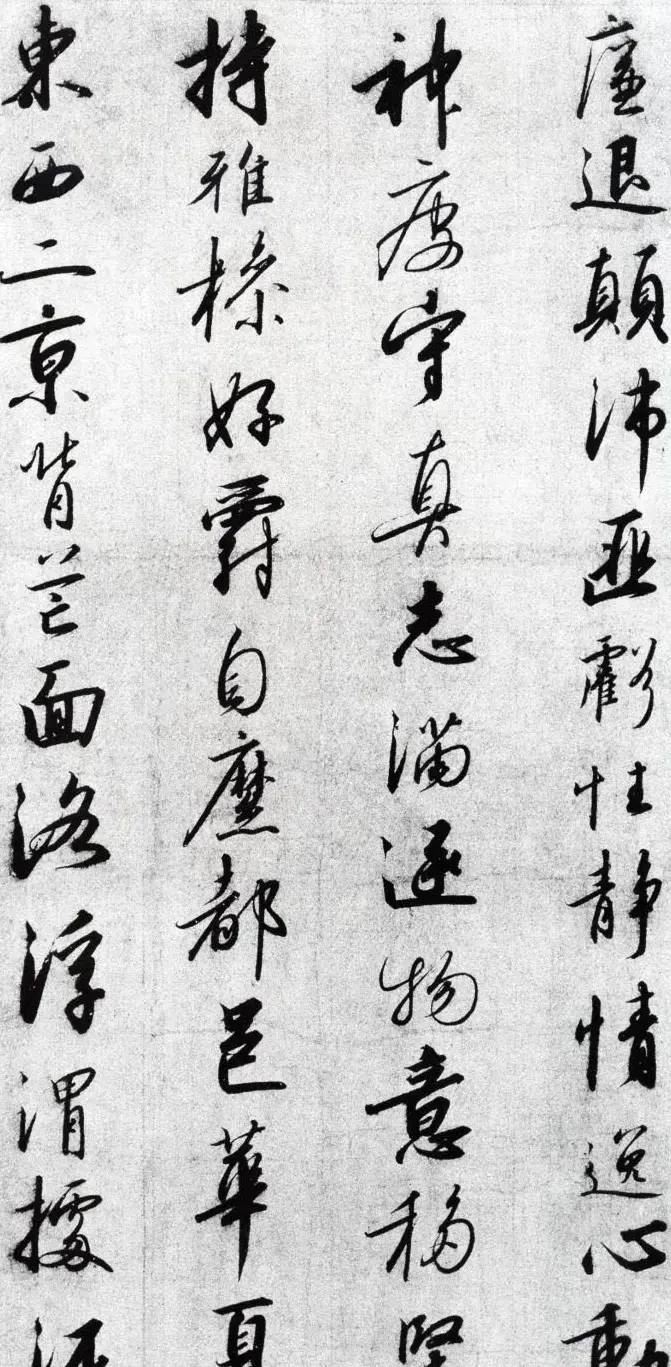 廉退顛沛匪虧性靜情逸心動
神疲守真志滿逐物意移堅
持雅操好爵自縻都邑華夏
東西二京背芒面洛浮渭據涇